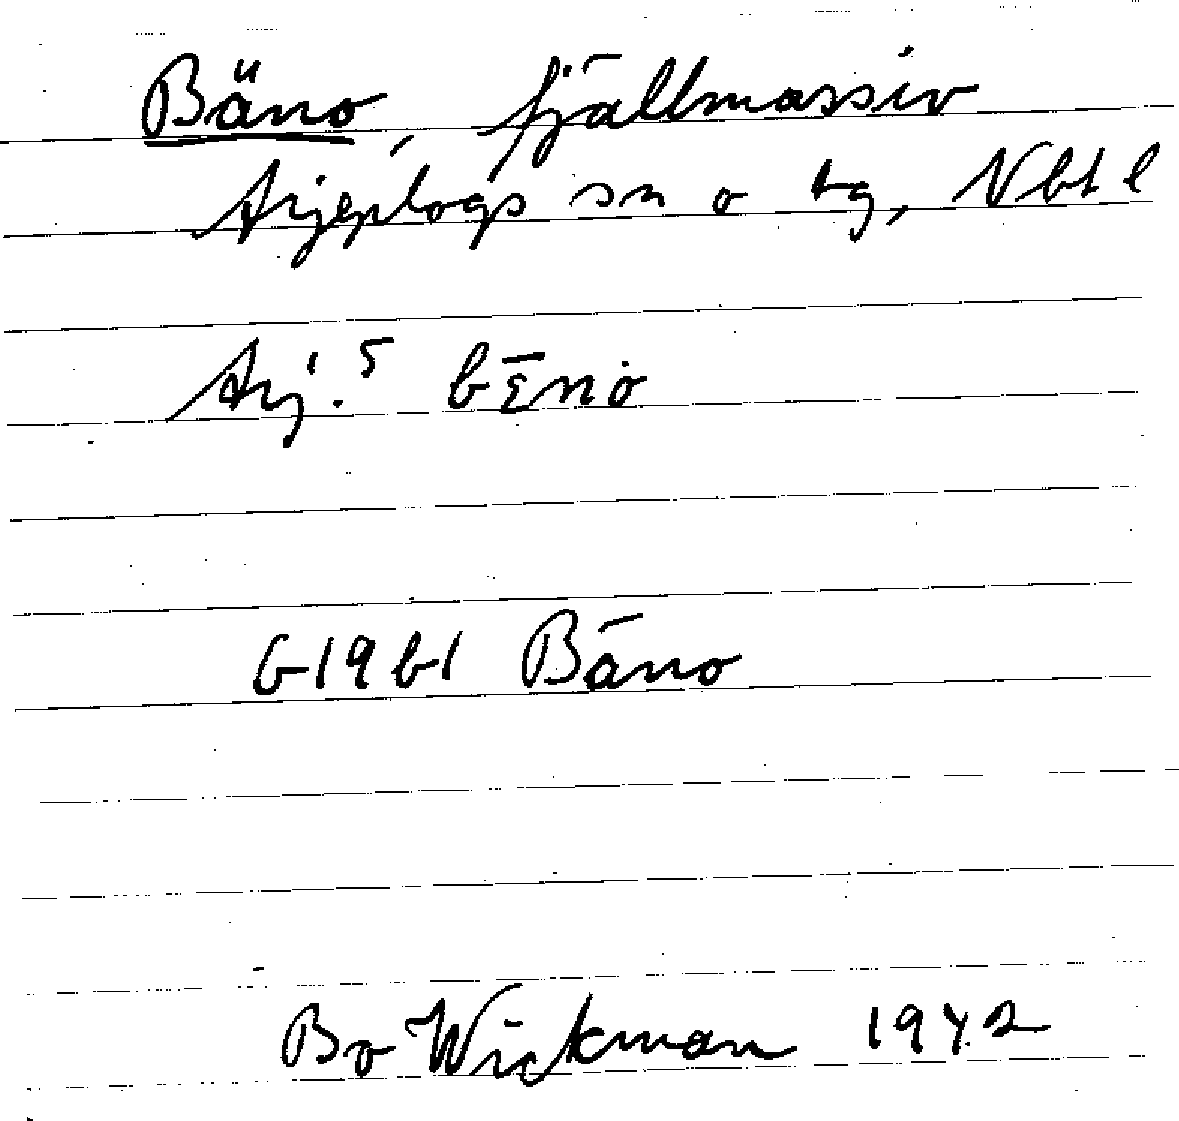 Bäno, fjällmassiv
Arjeplogs sn o tg, Nbt l
Arj. 5 bēnȯ
G1961 Bäno
Bo Wickman 1942